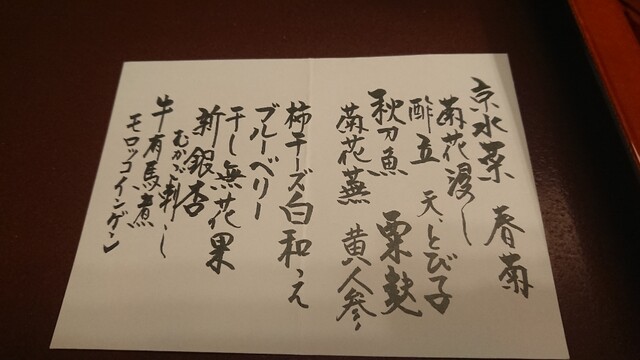 京水菜 春菊
菊花浸し
酢立 天、とび子
秋刀魚 粟麸
菊花蕪 黄人参
柿チーズ白和え
ブルーベリー
干し無花果
新銀杏
むかご刺し
牛有馬煮
モロッコインゲン